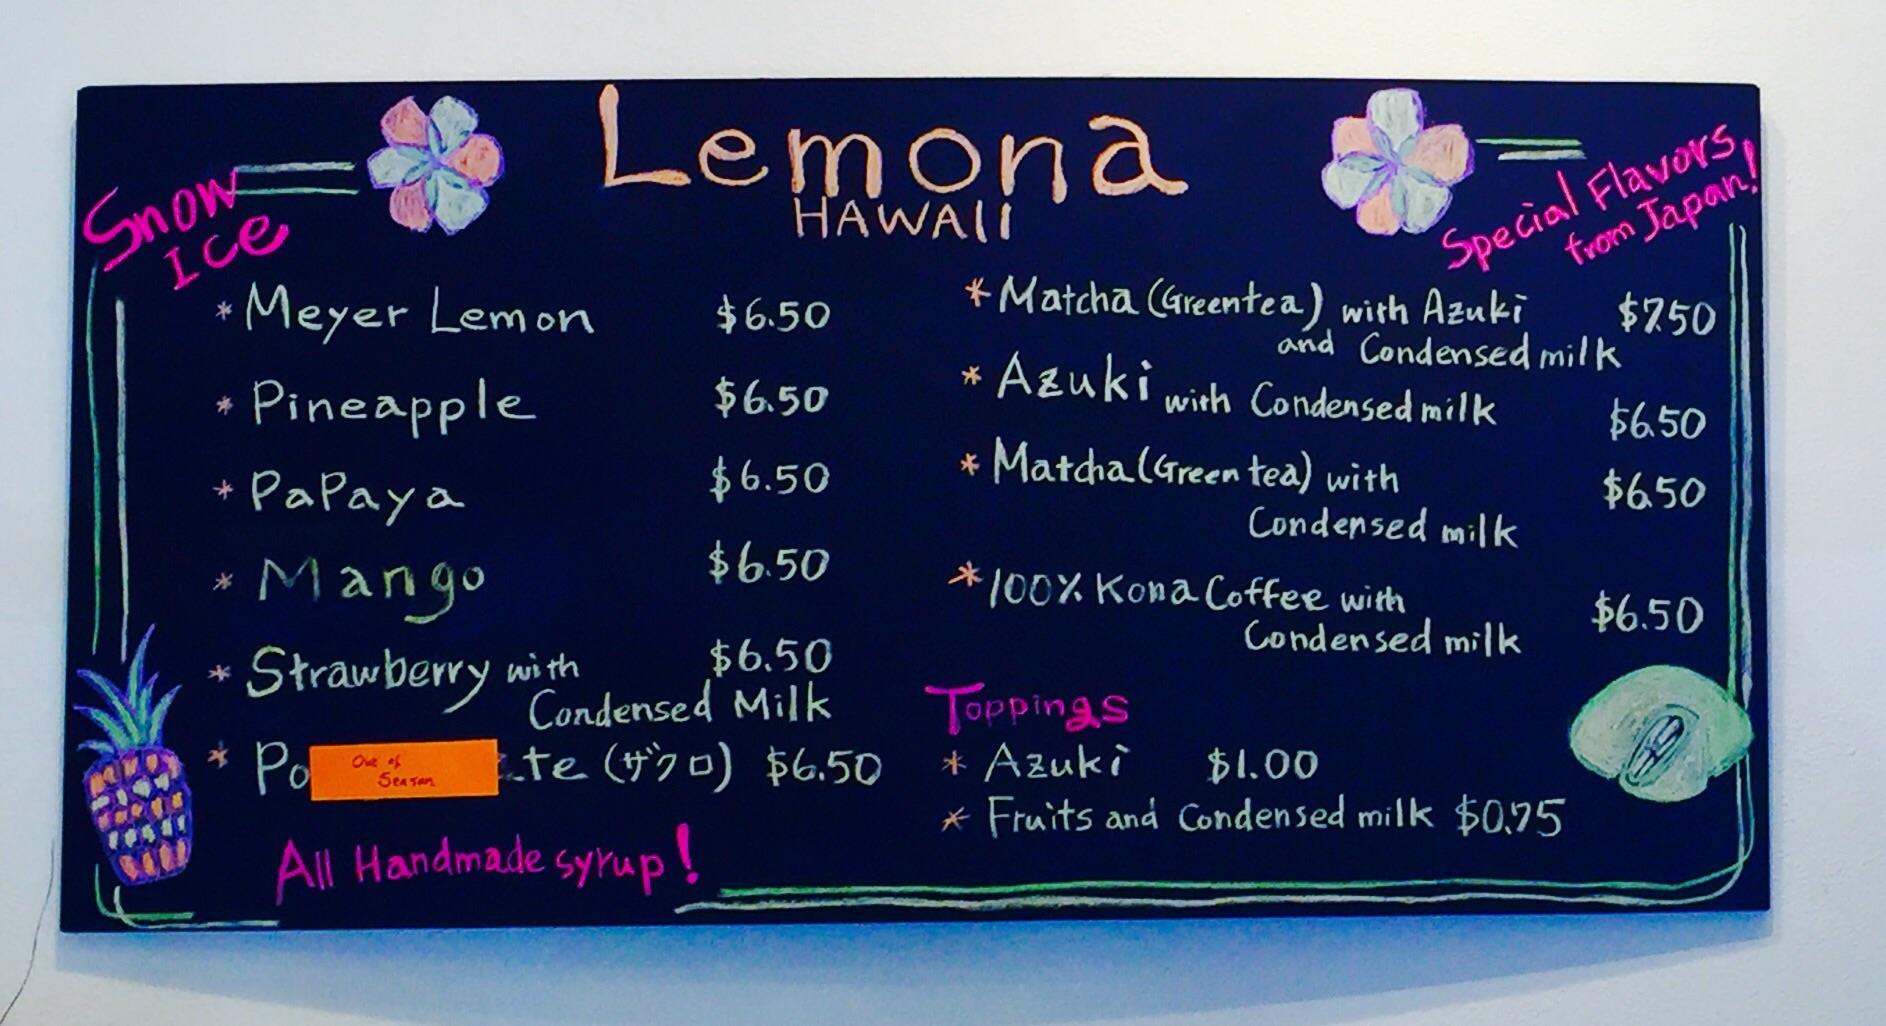 Lemona
HAWAII
Snow
Ice
* Meyer Lemon $6.50
* Pineapple $6.50
* PaPaya $6.50
* Mango $6.50
* Strawberry with $6.50
Condensed Milk
* Po Out of Season te (ザクロ) $6.50
All Handmade syrup!
Special Flavors
from Japan!
* Matcha (Green tea) with Azuki $7.50
and Condensed milk
* Azuki with Condensed milk $6.50
* Matcha (Green tea) with $6.50
Condensed milk
* 100% Kona Coffee with $6.50
Condensed milk
Toppings
* Azuki $1.00
* Fruits and Condensed milk $0.75